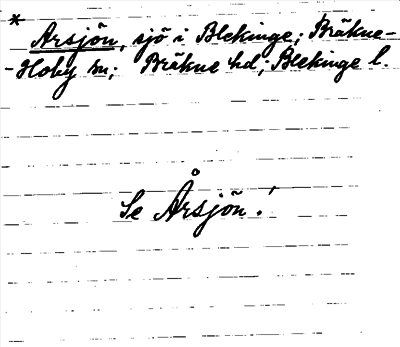 * Arsjön, sjö i Blekinge; Bräkne-
-Hoby sn; Bräkne hd, Blekinge l.
Se Årsjön!